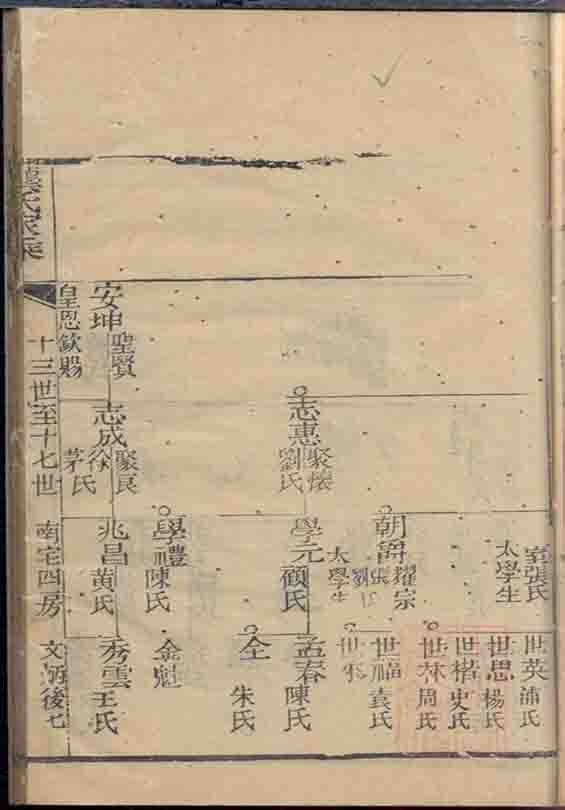 室張氏
太學生
朝爵
耀宗
張氏
太學生
世英
浦氏
世思
楊氏
世楷
史氏
世林
周氏
世福
袁氏
志惠
聚懷
劉氏
學元
顧氏
孟春
陳氏
仝
朱氏
學禮
陳氏
金魁
安坤
聖賢
皇恩欽賜
志成
聚良
徐
茅氏
兆昌
黄氏
秀雲
王氏
氏家乘
十三世至十七世
南宅四房